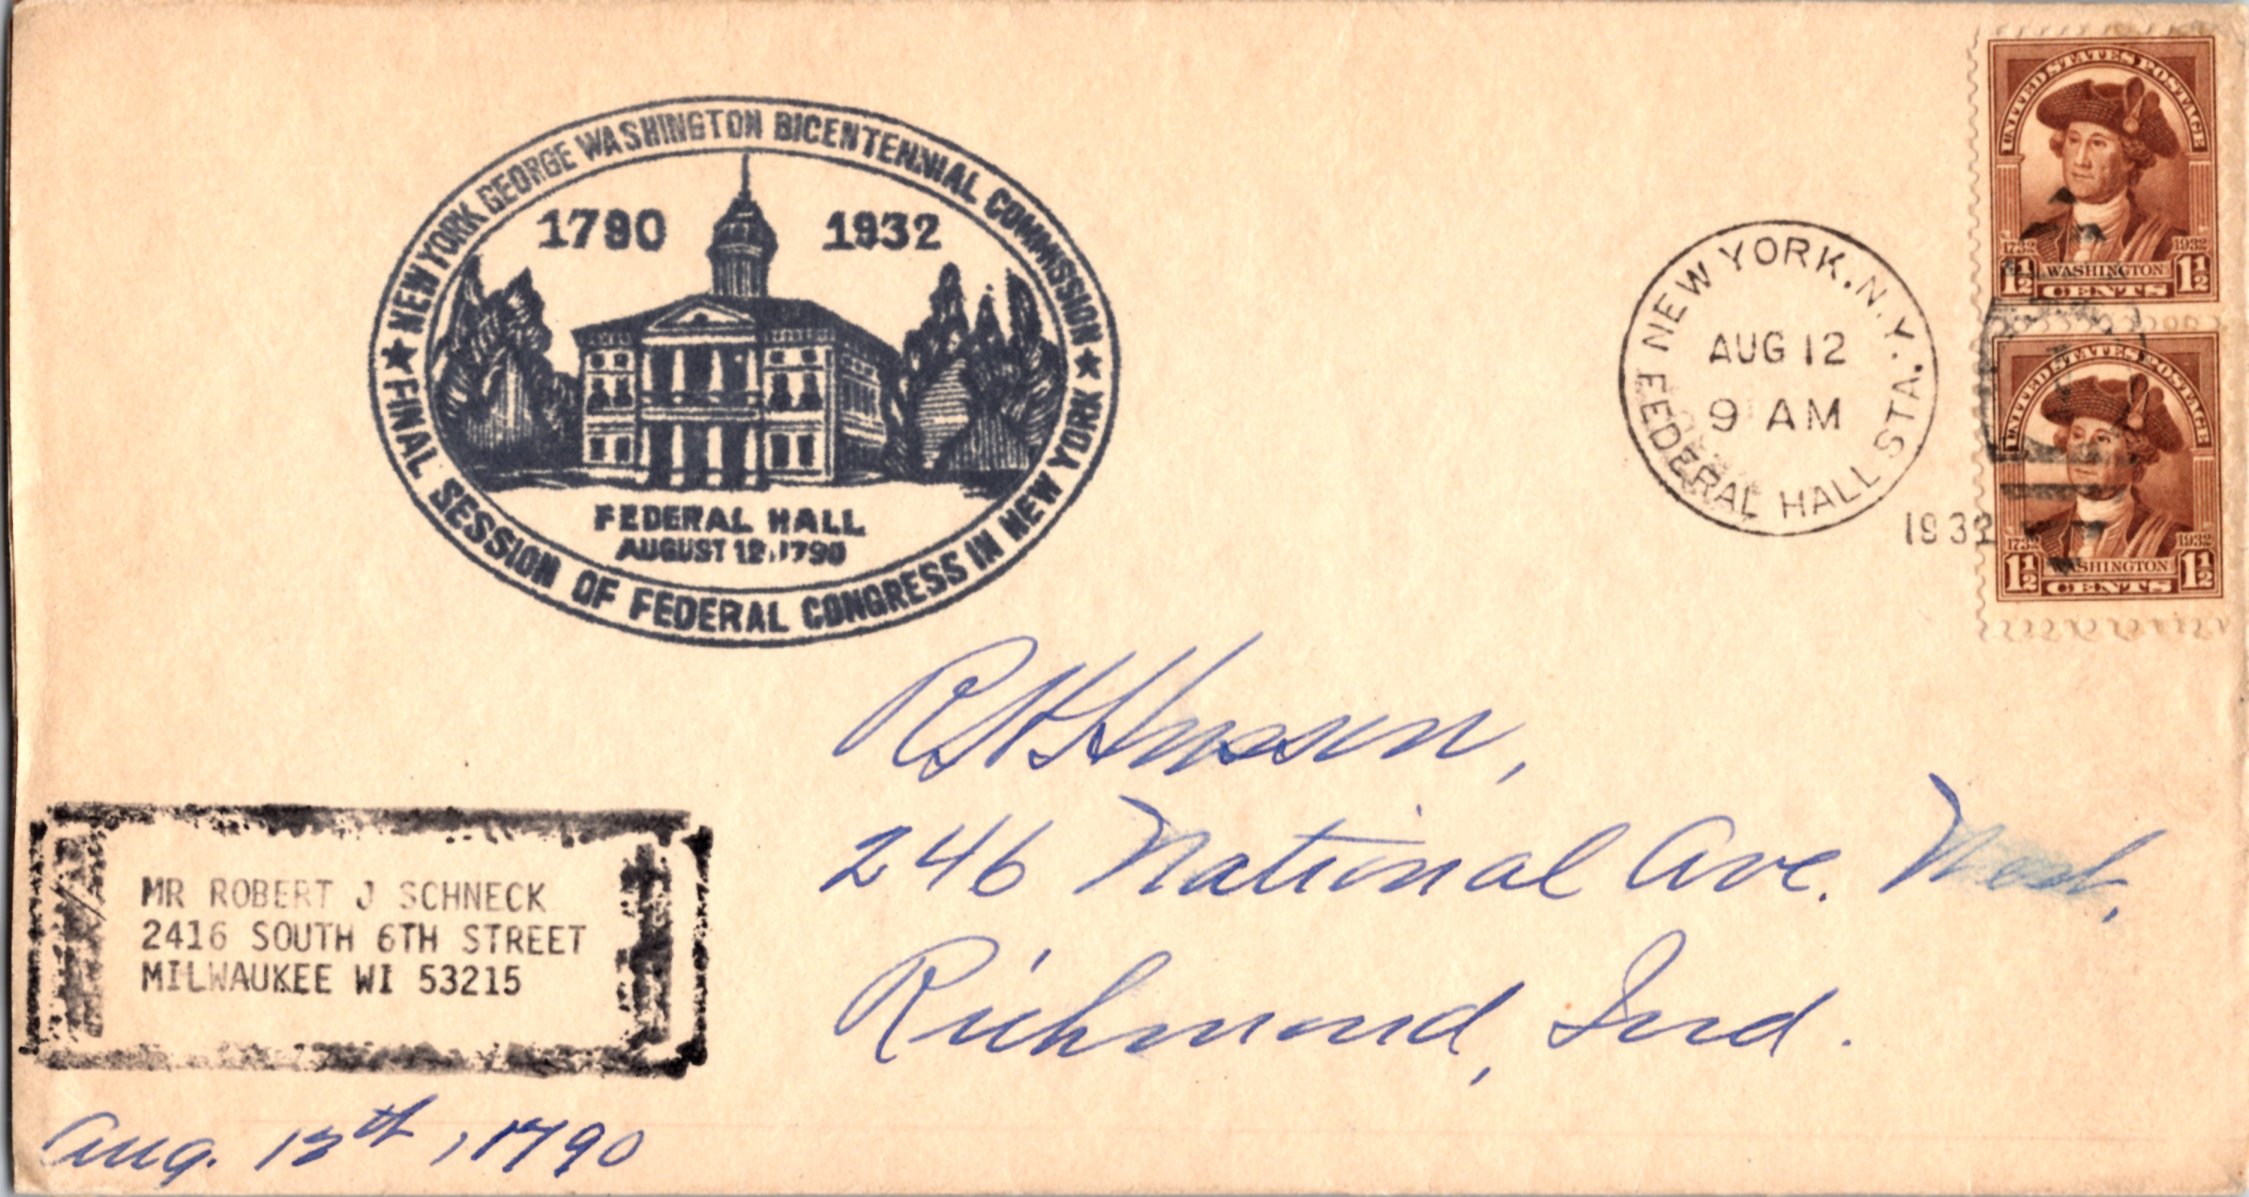 ★ NEW YORK GEORGE WASHINGTON BICENTENNIAL COMMISSION ★
1790 1932
FEDERAL HALL
AUGUST 12, 1790
FINAL SESSION OF FEDERAL CONGRESS IN NEW YORK
NEW YORK, N.Y.
AUG 12
9 AM
FEDERAL HALL STA.
1932
UNITED STATES POSTAGE
1732 1932
1½ WASHINGTON 1½
CENTS
UNITED STATES POSTAGE
1732 1932
1½ WASHINGTON 1½
CENTS
246 National Ave. West,
Richmond, Ind.
MR ROBERT J SCHNECK
2416 SOUTH 6TH STREET
MILWAUKEE WI 53215
Aug. 12th, 1790